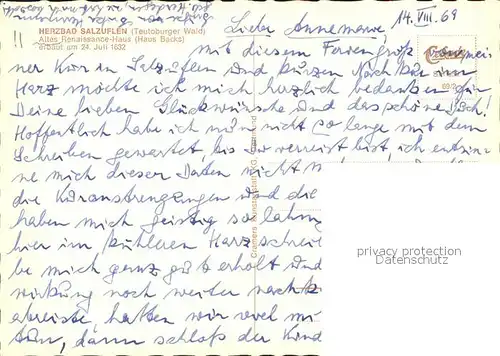 14. VIII. 69
HERZBAD SALZUFLEN (Teutoburger Wald)
Altes Renaissance-Haus (Haus Backs)
erbaut um 24. Juli 1632
Liebe Annemarie,
mit diesem Feriengruß von mei-
ner Kur in Salzuflen und kurzen Nachkur im
Harz möchte ich mich herzlich bedanken für
Deine lieben Glückwünsche und das schöne Buch!
Hoffentlich habe ich nun nicht so lange mit dem
Schreiben gewartet, bis Du verreist bist, ich entsin-
ne mich dieser Daten nicht
die Kuranstrengungen und die
haben mich geistig so lahm
hier im kühleren Harz schrei
be mich ganz gut erholt und
wirkung noch weiter nach
abreiste, hatten wir viel mi
tun, dann schloß der Kind
Cramers Kunstanstalt KG, Dortmund
privacy protection
Datenschutz